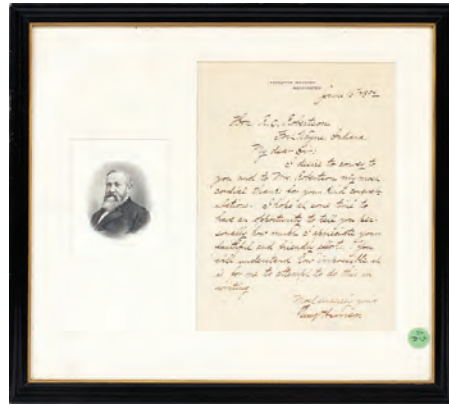 EXECUTIVE MANSION
WASHINGTON
Hon. R. C. Robertson
Ft. Wayne Indiana
My dear Sir:
I desire to convey to
you and to Mrs. Robertson my most
cordial thanks for your kind congrat-
ulations. I hope at some time to
have an opportunity to tell you per-
sonally how much I appreciate your
faithful and friendly efforts. You
will understand how impossible it
is for me to attempt to do this in
writing.
Most sincerely yours
Benj Harrison